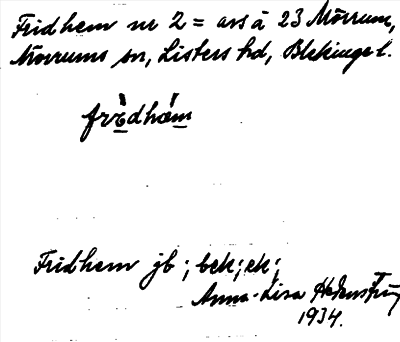 Fridhem nr 2 = avs å 23 Mörrum,
Mörrums sn, Listers hd, Blekinge l.
Fridhem jb; bek; ek;
Anna-Lisa
1934.